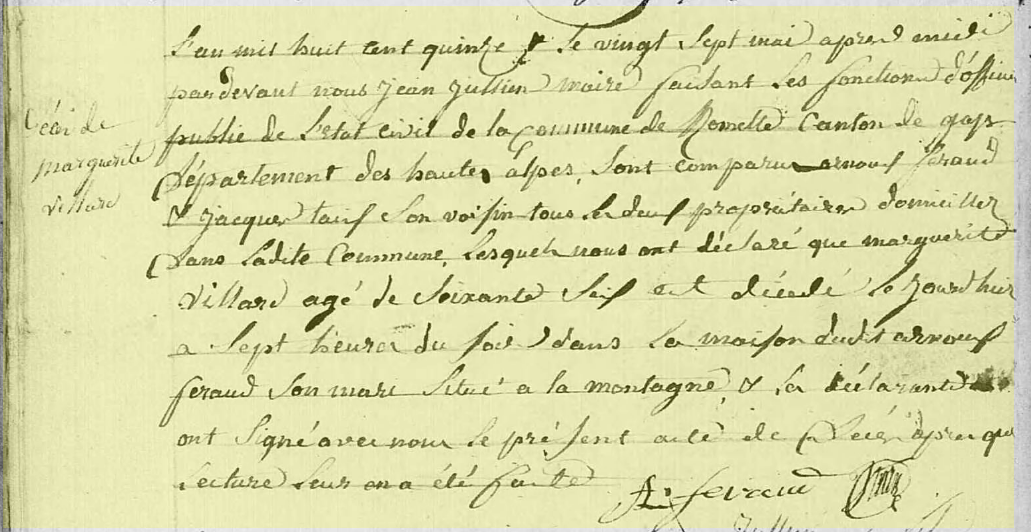 L'an mil huit cent quinze & le vingt sept mai apres midi
pardevant nous jean jullien maire faisant les fonctions d'officier
Décéz de
public de L'Etat civil de la Commune de Romette Canton de gap
marguerite
Département des hautes alpes, sont comparu arnoux feraud
villard
& jacques taix son voisin tous les deux propriétaires domiciliez
Dans Ladite Commune, Lesquels nous ont déclaré que marguerite
Villard agé de Soixante Six est décédé Le jourdhier
a Sept heures du soir dans La maison dudit arnoux
feraud Son mari Situé a la montagne, & Les déclarants
ont Signé avec nous Le présent acte de Décéz apres que
Lecture Leur en a été faite
A. feraud